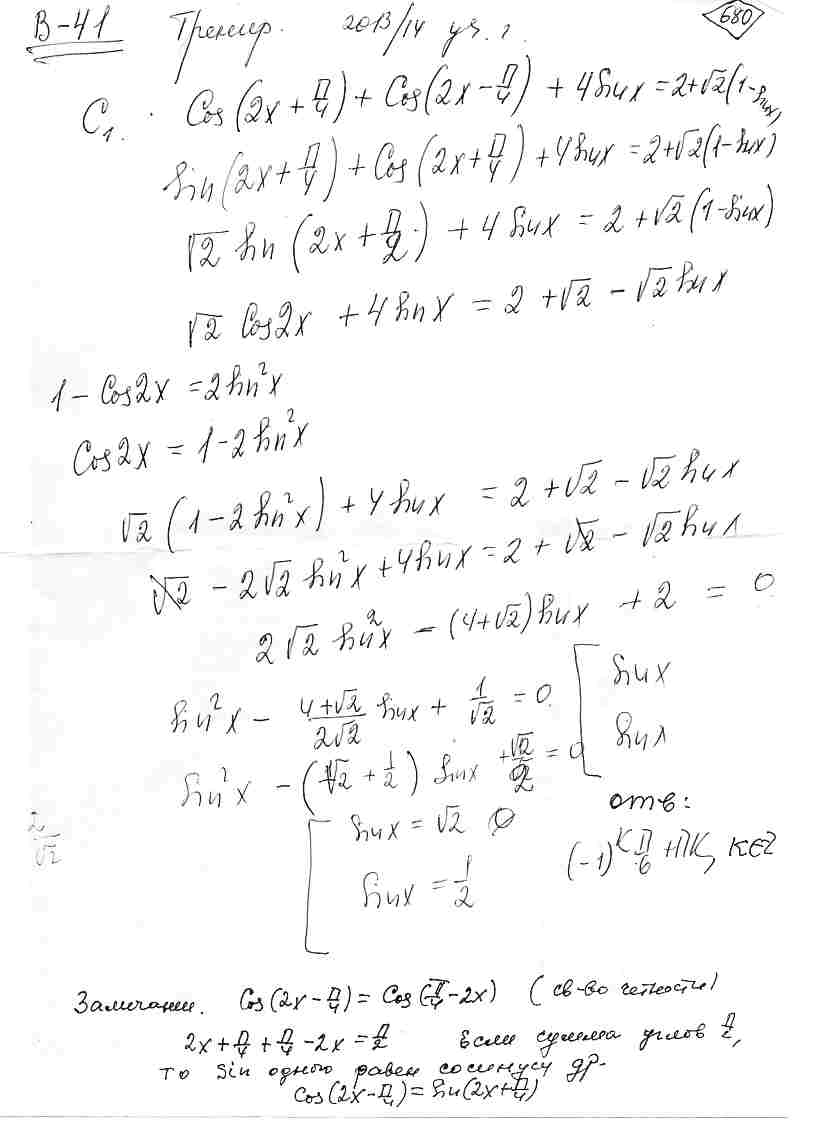 В-41 Тренир. 2013/14 уч. г. 680
C₁. Cos(2x + П/4) + Cos(2x - П/4) + 4 sin x = 2 + √2(1 - sin x)
sin(2x + П/4) + Cos(2x + П/4) + 4 sin x = 2 + √2(1 - sin x)
√2 sin(2x + П/2) + 4 sin x = 2 + √2(1 - sin x)
√2 Cos2x + 4 sin x = 2 + √2 - √2 sin x
1 - Cos2x = 2 sin²x
Cos2x = 1 - 2 sin²x
√2(1 - 2 sin²x) + 4 sin x = 2 + √2 - √2 sin x
√2 - 2√2 sin²x + 4 sin x = 2 + √2 - √2 sin x
2√2 sin²x - (4 + √2) sin x + 2 = 0
sin²x - (4 + √2)/(2√2) sin x + 1/√2 = 0
[ sin x
sin x
sin²x - (√2 + 1/2) sin x + √2/2 = 0
2/√2
[ sin x = √2 ∅
sin x = 1/2
отв:
(-1)^K П/6 + ПK, K∈Z
Замечание. Cos(2x - П/4) = Cos(П/4 - 2x) (св-во четности)
2x + П/4 + П/4 - 2x = П/2 Если сумма углов П/2,
то sin одного равен косинусу др.
Cos(2x - П/4) = sin(2x + П/4)